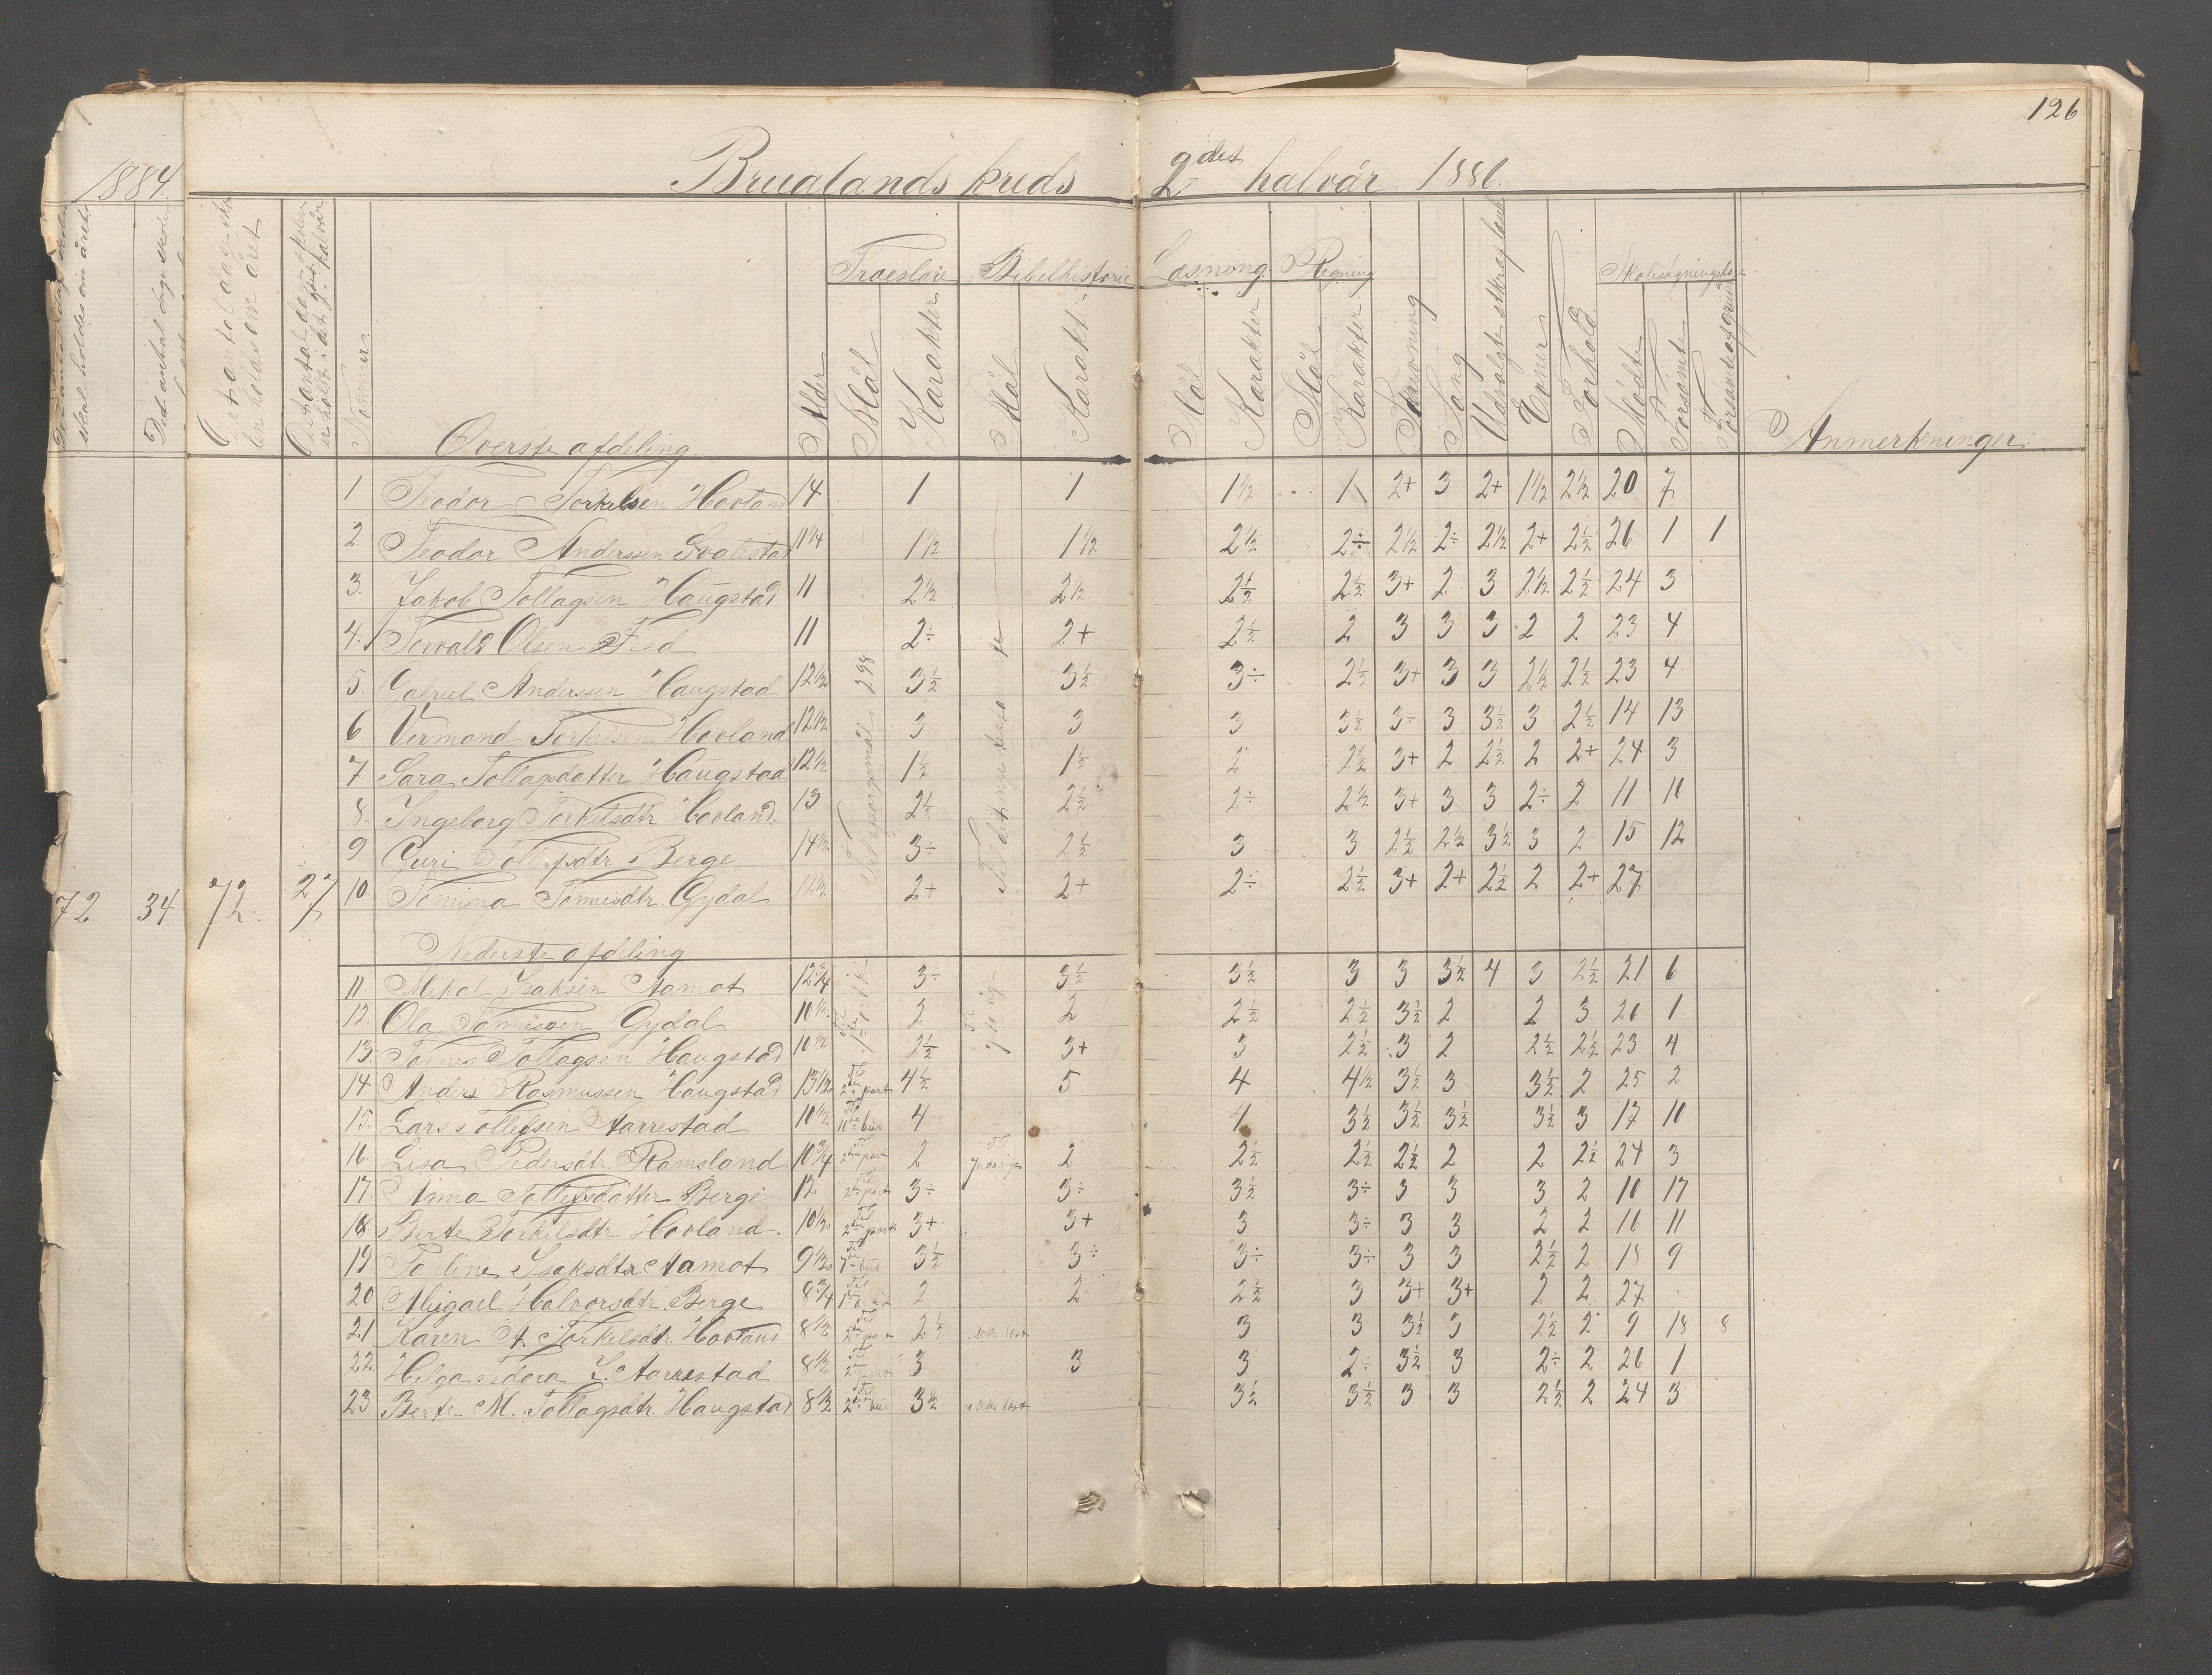 126
1884.
Bruelands kreds 2det halvår 1886.
skal holdes om året
Det antal dage skole
Det antal dage skole
er holdes om året
Det antal dage skolen
er holdt i det halvår
Nommer
Overste afdeling.
Alder
Troeslære
Mål
Karakter
Bibelhistorie
Mål
Karakt.
Læsning
Mål
Karakter
Regning
Mål
Karakter
Skrivning
Sang
Udvalgte stkr af læseb
Evner
Forhold
Skolesøgningsdage
Mødte
Forsømte
Anmerkninger.
72 34 72. 27
1 Teodor Torkelsen Hovland 14 1 1 1½ 1 2+ 3 2+ 1½ 2½ 20 7
2. Teodor Anderssen 11¼ 1½ 1½ 2½ 2÷ 2½ 2÷ 2½ 2+ 2½ 26 1 1
3. Jakob Tollagsen Haugstad 11 2½ 2½ 2½ 2½ 3+ 2 3 2½ 2½ 24 3
4. Olsen 11 2÷ 2+ 2½ 2 3 3 3 2 2 23 4
5. Gabriel Anderssen Haugstad 12½ 3½ 3½ 3÷ 2½ 3+ 3 3 2½ 2½ 23 4
6 Vermond Torkelsen Hovland 12½ 3 3 3 3½ 3÷ 3 3½ 3 2½ 14 13
7 Sara Tollagsdatter Haugstad 12½ 1½ 1½ 2 2½ 3+ 2 2½ 2 2+ 24 3
8. Ingeborg Torkelsdtr Hovland. 13 2½ 2½ 2÷ 2½ 3+ 3 3 2÷ 2 11 11
9 Guri Tollefsdtr Berge 14½ 3÷ 2½ 3 3 2½ 2½ 3½ 3 2 15 12
10 Tomina Tønnesdtr. Gydal 12½ 2+ 2+ 2÷ 2½ 3+ 2+ 2½ 2 2+ 27
Nederste afdeling
11. Mikal Isaksen Aamot 12¾ 3÷ 3½ 3½ 3 3 3½ 4 3 2½ 21 6
12. Ola Tønnessen Gydal 2 2 2½ 2½ 3½ 2 2 3 26 1
13. Tønnes Tollagsen Haugstad 10½ 2½ 3+ 3 2½ 3 2 2½ 2½ 23 4
14. Anders Rasmussen Haugstad 13½ Til 2den part 4½ 5 4 4½ 3½ 3 3½ 2 25 2
15. Lars Tollefsen Aarrestad 10½ 4 4 3½ 3½ 3½ 3½ 3 17 10
16. Lisa Pedersdtr. Ramsland 10¾ 2 2 2½ 2½ 2½ 2 2 2½ 24 3
17. Anna Tollefsdatter Berge 12 3÷ 3÷ 3½ 3÷ 3 3 3 2 10 17
18. Berte Torkilsdtr. Hovland. 10½ 3+ 3+ 3 3÷ 3 3 2 2 16 11
19 Isaksdtr. Aamot 9½ 3½ 3÷ 3÷ 3÷ 3 3 2½ 2 18 9
20 Abigael Halvorsdtr. Berge 8¾ 2 2 2½ 3 3+ 3+ 2 2 27
21 Karen A. Torkelsdtr. Hovland 8½ 2½ ikke læst 3 3 3½ 3 2½ 2 9 18 8
22. Helga Aarrestad 8½ 3 3 3 2÷ 3½ 3 2÷ 2 26 1
23 Berte M. Tollagsdtr. Haugstad 8½ 3½ ikke læst 3½ 3½ 3 3 2½ 2 24 3